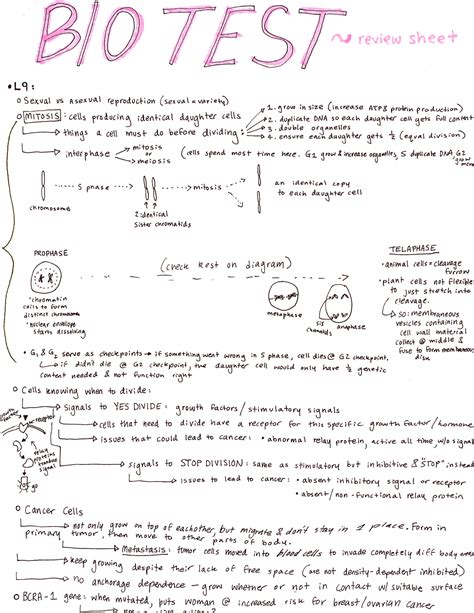 BIO TEST
~ review sheet
• L9:
o Sexual vs Asexual reproduction (sexual = variety)
o MITOSIS: cells producing identical daughter cells
things a cell must do before dividing:
1. grow in size (increase ATP & protein production)
2. duplicate DNA so each daughter cell gets full content
3. double organelles
4. ensure each daughter gets 1/2 (equal division)
interphase
mitosis
or
meiosis
(cells spend most time here. G1 grow & increase organelles, S duplicate DNA, G2 grow more
chromosome
S phase
2 identical
sister chromatids
mitosis
an identical copy
to each daughter cell
PROPHASE
•chromatin
coils to form
distinct chromosomes
•nuclear envelope
starts dissolving
(check rest on diagram)
metaphase
sis
chromatids
anaphase
TELAPHASE
•animal cells = cleavage
furrow
•plant cells not flexible
to just stretch into
cleavage.
so: membraneous
vesicles containing
cell wall material
collect @ middle &
fuse to form membranous
disc
• G1 & G2 serve as checkpoints → if something went wrong in S phase, cell dies @ G2 checkpoint.
if didn't die @ G2 checkpoint, the daughter cell would only have 1/2 genetic
content needed & not function right
o Cells knowing when to divide:
growth
factor
receptor
relay
proteins
transduce
signal
go
signals to YES DIVIDE: growth factors/stimulatory signals
cells that need to divide have a receptor for this specific growth factor/hormone
issues that could lead to cancer: • abnormal relay protein, active all time w/o signal
signals to STOP DIVISION: same as stimulatory but inhibitive & "STOP" instead
issues to lead to cancer: • absent inhibitory signal or receptor
• absent/non-functional relay protein
o Cancer Cells
not only grow on top of eachother, but migrate & don't stay in 1 place. Form in
primary tumor, then move to other parts of body.
Metastasis: tumor cells moved into blood cells to invade completely diff body areas
keep growing despite their lack of free space (are not density-dependent inhibited)
no anchorage dependence - grow whether or not in contact w/ suitable surface
o BCRA-1 gene: when mutated, puts woman @ increased risk for breast/ovarian cancer